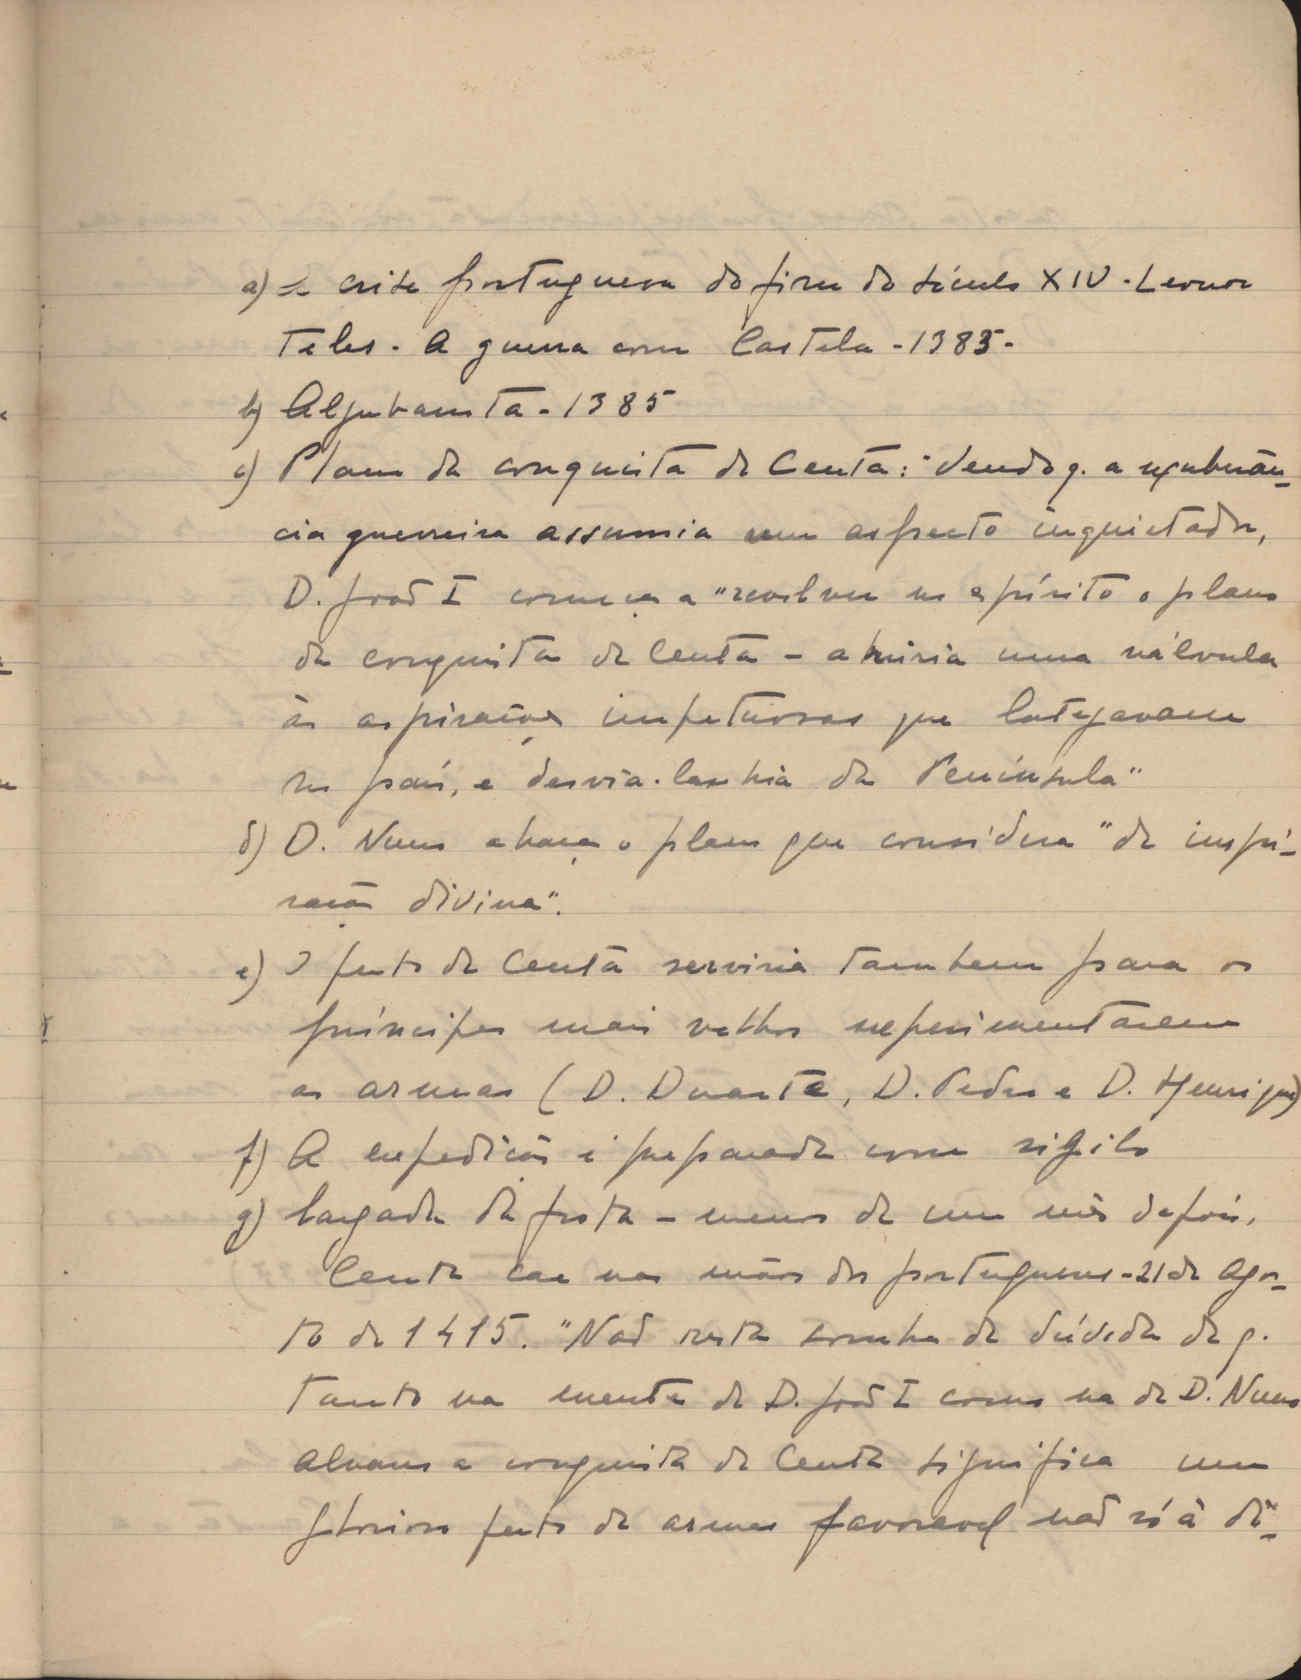 a) A crise portuguesa do fim do século XIV - Leonor
Teles - A guerra com Castela - 1383 -
b) Aljubarrota - 1385
c) Plano da conquista de Ceuta: "Vendo q. a exuberân-
cia guerreira assumia um aspecto inquietador,
D. João I começa a "revolver no espírito o plano
da conquista de Ceuta - abriria uma válvula
às aspirações impetuosas que latejavam
no país, e desviá-las-hia da Península"
d) D. Nuno abraça o plano que considera "de inspi-
ração divina".
e) O feito de Ceuta serviria tambem para os
príncipes mais velhos experimentarem
as armas (D. Duarte, D. Pedro e D. Henrique)
f) A expedição é preparada com sigilo
g) Largada da frota - menos de um mês depois,
Ceuta cae nas mãos dos portugueses - 21 de Agos-
to de 1415. "Não resta sombra de dúvida de q.
tanto na mente de D. João I como na de D. Nuno
Alvares a conquista de Ceuta significa um
glorioso feito de armas favoravel não só à di-